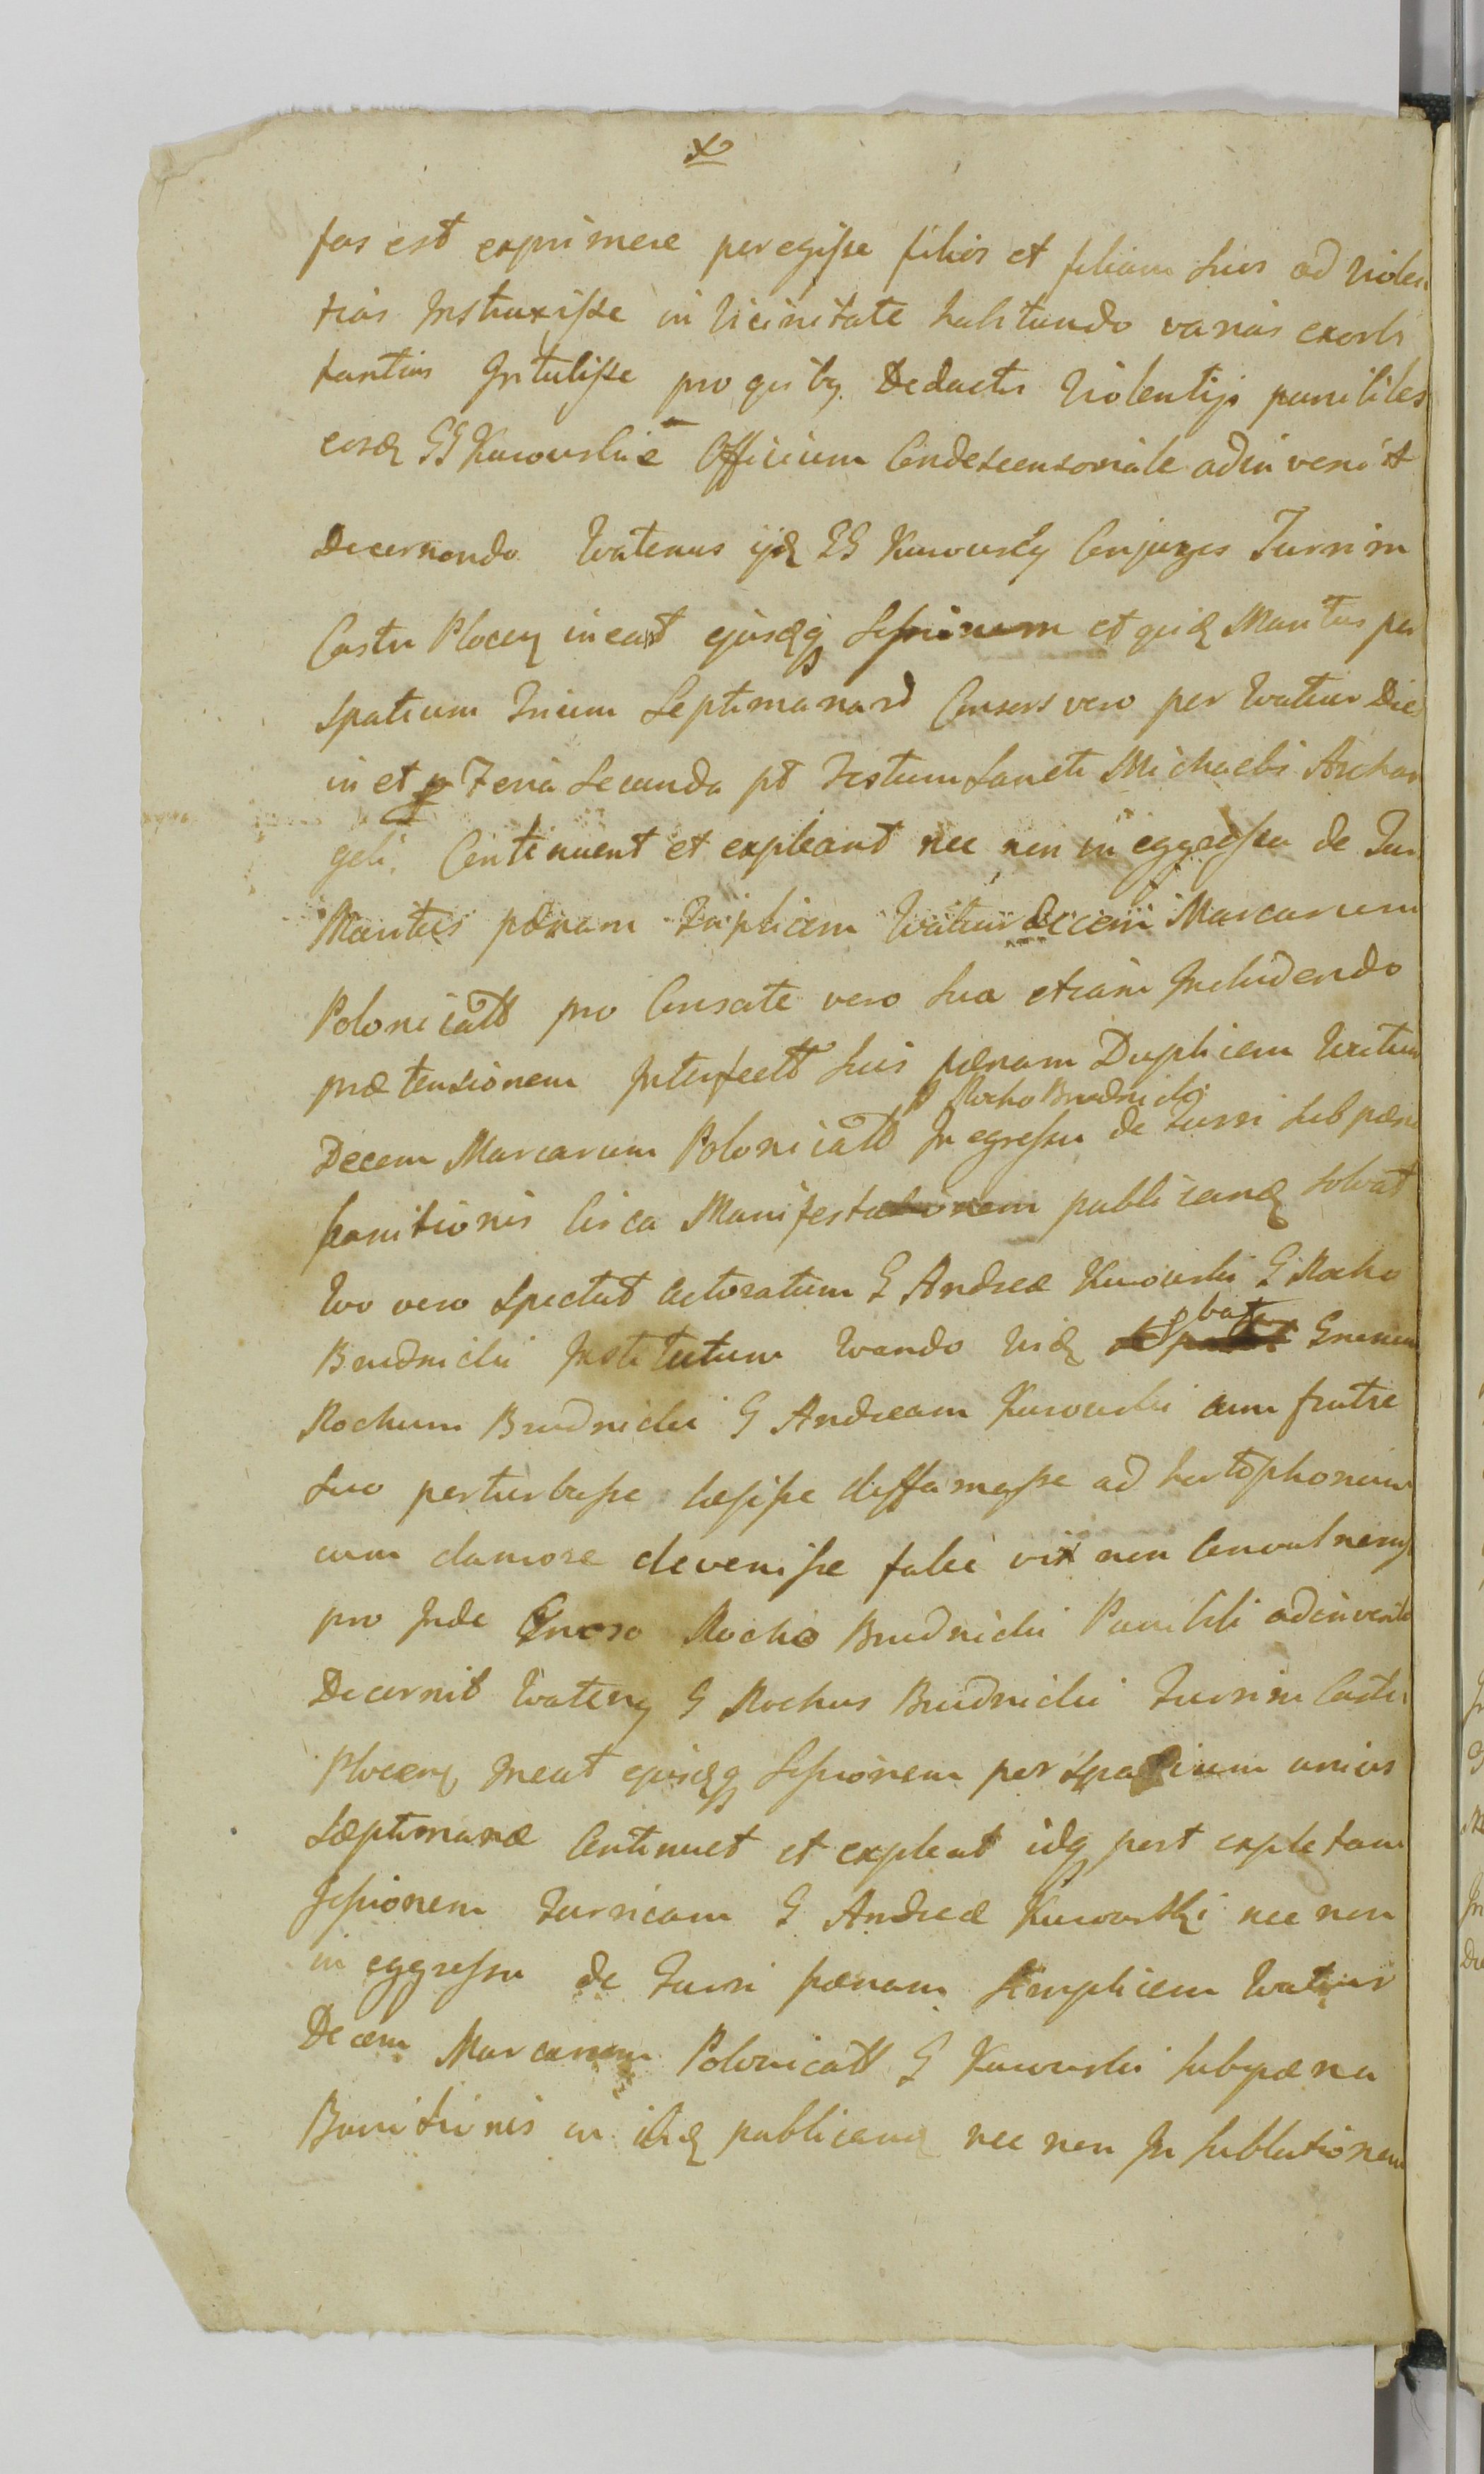 fas est exprimere peregisse filios et filiam suis ad violen
tias Instruxisse in vicinitate habitando varias exorbi
tantias Intulisse pro quibq Deductis violentijs punibiles
eosd GG Kurowskie Officium Condescensoriale adinvenit
Decernendo quatenus ijd GG Kurowscy Conjuges Turrim
Castri Plocen ineant ejusdq Sessionem et quid Maritus per
spatium Trium Septimanard Consors vero per quatuor Die
in et Feria Secunda pt Festum Sancti Michaelis Archan
geli. Continuent et expleant nec non in eggressu de Tur
Maritus pænam Triplicem quatuordecem Marcarum
Polonicatt pro Consorte vero sua etiam Includendo
prætensionem Interfectt suis pænam Duplicem quatuor
G Rocho Brudnicki
Decem Marcarum Polonicatt In egressu de Turri sub pæna
banitionis Circa Manifestationem publicand solvat
quo vero spectat actoratum G Andreæ Kurowski G Rocho
Brudnicki Institutum quando vid Gnerosum
Rochum Brudnicki G Andream Kurowski cum fratre
suo perturbasse læsisse diffamasse ad
cum clamore devenisse falce vix non Convulneras
pro Inde Gnroso Rocho Brudnicki Punibili adinvento
Decernit quatenq G Rochus Brudnicki Turrim Castri
Plocen Ineat ejusdq Sessionem per spatium unius
Sæptimanæ Continuet et expleat idq post expletam
Sessionem Turricam G Andreæ Kurowski nec non
in eggressu de Turri pænam Simplicem quatuor
Decem Marcarum Polonicatt G Kurowski sub pæna
Banitionis in ibid publicand nec non In sublutionem